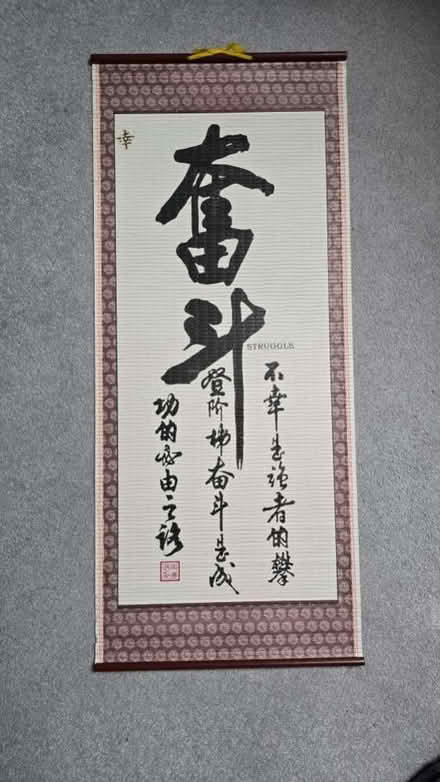 幸
奋斗
STRUGGLE
不幸是强者的攀
登阶梯奋斗是成
功的必由之路